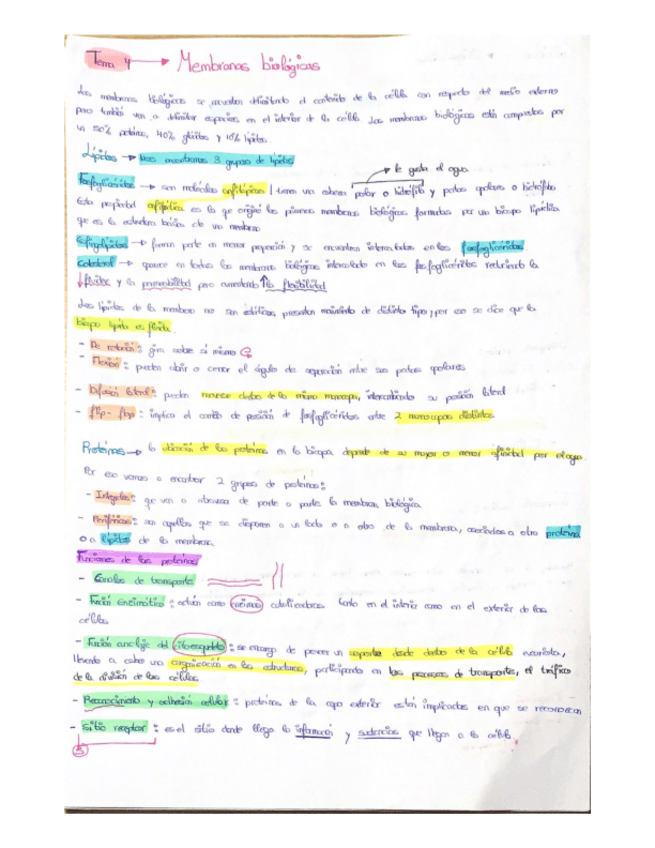 Tema 4 → Membranas biológicas
Las membranas biológicas se encuentran delimitando el contenido de la célula con respecto del medio externo
pero también van a delimitar espacios en el interior de la célula. Las membranas biológicas están compuestas por
un 50% proteínas, 40% glúcidos y 10% lípidos.
Lípidos → 3 grupos de lípidos
le gusta el agua
Fosfoglicéridos → son moléculas anfipáticas / tienen una cabeza polar o hidrófila y partes apolares o hidrófobas
Esta propiedad anfipática es la que originó las primeras membranas biológicas formadas por una bicapa lipídica
que es la estructura básica de una membrana
Esfingolípidos → forman parte en menor proporción y se encuentran intercalados en los fosfoglicéridos
Colesterol → aparece en todas las membranas biológicas intercalado en los fosfoglicéridos reduciendo la
↓ fluidez y la permeabilidad pero aumentando ↑ la flexibilidad
Los lípidos de la membrana no son estáticos, presentan movimiento de distinto tipo, por eso se dice que la
bicapa lipídica es fluida.
- De rotación: gira sobre sí mismo
- Flexión: pueden abrir o cerrar el ángulo de separación entre sus partes apolares
- Difusión lateral: pueden moverse dentro de la misma monocapa, intercambiando su posición lateral
- flip-flop: implica el cambio de posición de fosfoglicéridos entre 2 monocapas distintas
Proteínas → la ubicación de las proteínas en la bicapa depende de su mayor o menor afinidad por el agua.
Por eso vamos a encontrar 2 grupos de proteínas:
- Integrales: que van a atravesar de parte a parte la membrana biológica
- Periféricas: son aquellas que se disponen a un lado o a otro de la membrana, asociadas a otra proteína
o a lípidos de la membrana.
Funciones de las proteínas
- Canales de transporte
- Función enzimática: actúan como enzimas catalizadoras tanto en el interior como en el exterior de las
células
- Función anclaje del citoesqueleto: se encarga de poner un soporte desde dentro de la célula
llevando a cabo una organización en las estructuras, participando en los procesos de transportes, el tráfico
de la división de las células.
- Reconocimiento y adhesión celular: proteínas de la capa exterior están implicadas en que se reconozcan
- Sitio receptor: es el sitio donde llega la información y sustancias que llegan a la célula.